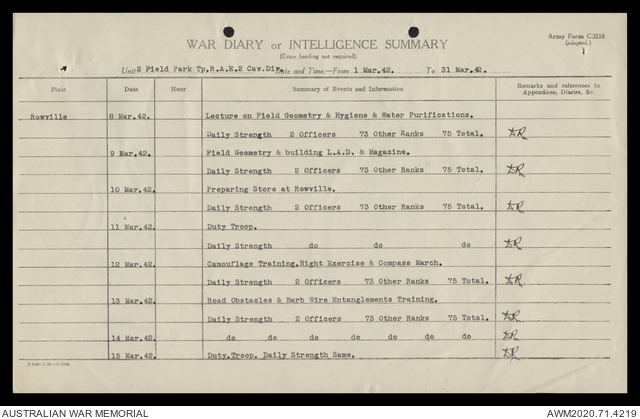 Army Form C.2118
(adapted.)
WAR DIARY or INTELLIGENCE SUMMARY
(Erase heading not required).
Unit 2 Field Park Tp.R.A.E.2 Cav.Div. Date and Time.—From 1 Mar.42. To 31 Mar.42.
Place Date Hour Summary of Events and Information Remarks and references to Appendices, Diaries, &c.
Rowville 8 Mar.42. Lecture on Field Geometry & Hygiene & Water Purifications.
Daily Strength 2 Officers 73 Other Ranks 75 Total.
9 Mar.42. Field Geometry & building L.A.D. & Magazine.
Daily Strength 2 Officers 73 Other Ranks 75 Total.
10 Mar.42. Preparing Store at Rowville.
Daily Strength 2 Officers 73 Other Ranks 75 Total.
11 Mar.42. Duty Troop.
Daily Strength do do do
12 Mar.42. Camouflage Training.Night Exercise & Compass March.
Daily Strength 2 Officers 73 Other Ranks 75 Total.
13 Mar.42. Road Obstacles & Barb Wire Entanglements Training.
Daily Strength 2 Officers 73 Other Ranks 75 Total.
14 Mar.42. do do do do do do do
15 Mar.42. Duty.Troop. Daily Strength Same.
AUSTRALIAN WAR MEMORIAL AWM2020.71.4219